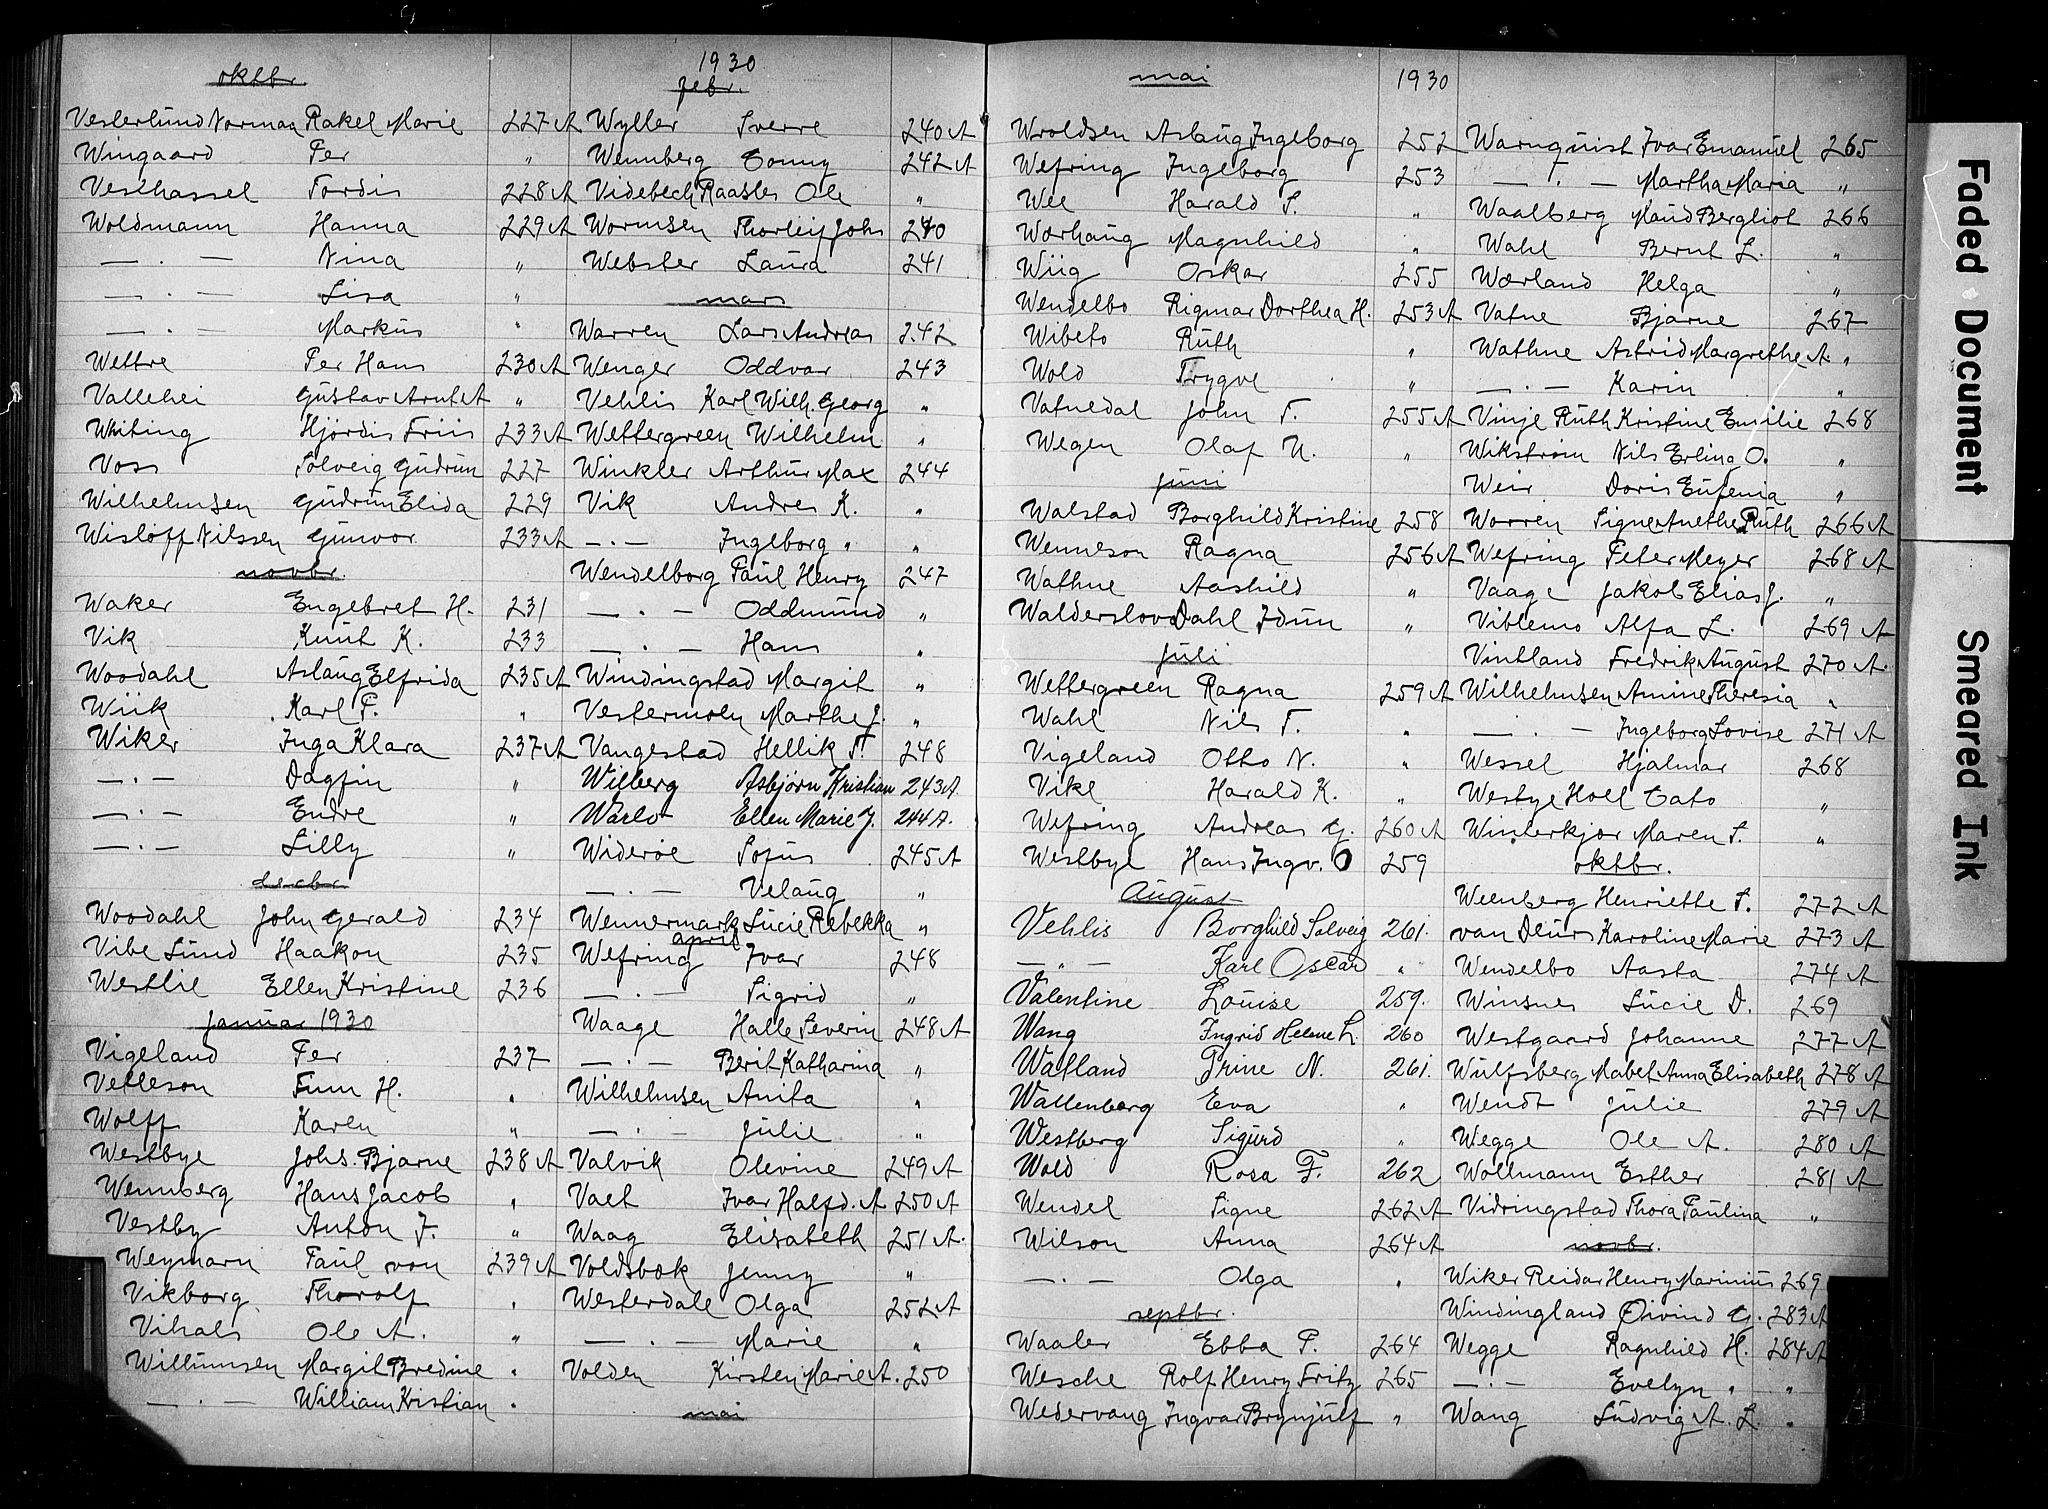 oktbr.
Vesterlund Norman Rakel Marie 227 A
Wingaard Per "
Vesthassel Tordis 228 A
Woldmann Hanna 229 A
— . — Nina "
— . — Lisa "
— . — Markus "
Wettre Per Hans 230 A
Vallehei Gustav Arnt A "
Whiting Hjördis Friis 233 A
Voss Solveig Gudrun 227
Wilhelmsen Gudrun Elida 229
Wisloff Nilssen Gunvor 233 A
novbr.
Waker Engebret H. 231
Vik Knut K. 233
Woodahl Aslaug Elfrida 235 A
Wiik Karl F. "
Wiker Inga Klara 237 A
— . — Dagfin "
— . — Endre "
— . — Lilly "
desbr
Woodahl John Gerald 234
Vibe Lund Haakon 235
Westlie Ellen Kristine 236
januar 1930
Vigeland Per 237
Vetleson Finn H. "
Wolff Karen "
Westbye Johs. Bjarne 238 A
Wennberg Hans Jacob "
Vestby Anton J. "
Weymarn Paul von 239 A
Vikborg Thorolf "
Vihals Ole A. "
Willumsen Margit Bredine "
— . — William Kristian "
1930
febr.
Wyller Sverre 240 A
Wennberg Conny 242 A
Videbech Raastes Ole "
Wormsen Thorleif Johs 240
Webster Laura 241
mars
Warren Lars Andreas 242
Wenger Oddvar 243
Vehlis Karl Wilh. Georg "
Wettergreen Wilhelm "
Winkler Arthur Max 244
Vik Andres K. "
— . — Ingeborg " "
Wendelborg Paul Henry 247
— . — Oddmund "
— . — Hans "
Windingstad Margit "
Vestermoen Marthe J. "
Vangestad Hellik T. 248
Wilberg Asbjörn Kristian 243 A
Warlo Ellen Marie J. 244 A.
Wideröe Sofus 245 A
— . — Velaug "
Wennermark Lucie Rebekka "
april
Wefring Ivar 248
— . — Sigrid "
Waage Halle Severin 248 A
— . — Berit Katharina "
Wilhelmsen Anita "
— . — Julie "
Valvik Olevine 249 A
Vaet Ivar Halfd. A 250 A
Waag Elisabeth 251 A.
Voldsbæk Jenny "
Westerdale Olga 252 A
— . — Marie "
Volden Kirsten Marie A. 250
mai
mai
Wroldsen Aslaug Ingeborg 252
Wefring Ingeborg 253
Wee Harald S. "
Worhaug Magnhild "
Wiig Oskar 255
Wendelbo Rigmar Dorthea H. 253 A
Wibeto Ruth "
Wold Trygve "
Vatnedal John T. 255 A
Wegen Olaf N. "
juni
Walstad Borghild Kristine 258
Wenneson Ragna 256 A
Wathne Aashild "
Walderslovs Dahl Idun "
juli
Wettergreen Ragna 259 A
Wahl Nils T. "
Vigeland Otto N. "
Vikl Harald K. "
Wefring Andreas G. 260 A
Westbye Hans Ingv. O 259
August
Vehlis Borghild Solveig 261.
— " — Karl Oscar "
Valentine Louise 259.
Wang Ingrid Helene L. 260
Watland Trine N. 261.
Wallenborg Eva "
Westberg Sigurd "
Wold Rosa F. 262
Wendel Signe 262 A
Wilson Anna 264 A
— . — Olga "
septbr.
Waaler Ebba P. 264
Wesche Rolf Henry Fritz 265
Wedervang Ingvar Brynjulf "
1930
Warnquist Ivar Emanuel 265
— . — Martha Maria "
Waalberg Maud Bergliot 266
Wahl Bernt L. "
Wærland Helga "
Vatne Bjarne 267
Wathne Astrid Margrethe A. "
— . — Karin "
Vinje Ruth Kristine Emilie 268
Wikström Nils Erling O. "
Weir Doris Eufemia "
Worren Signe Anethe Ruth 266 A
Wefring Peter Meyer 268 A
Vaage Jakob Elias J. "
Viblemo Alfa L. 269 A
Vintland Fredrik August 270 A.
Wilhelmsen Amine Theresia "
— . — Ingeborg Lovise 271 A
Wessel Hjalmar 268
Westye Holl Cato "
Winterkjær Maren S. "
oktbr.
Weenberg Henriette S. 272 A
van Deurs Karoline Marie 273 A
Wendelbo Aasta 274 A
Winsnes Lucie D. 269
Westgaard Johanne 277 A
Wulfsberg Mabet Anna Elisabeth 278 A
Wendt Julie 279 A
Wegge Ole A. 280 A
Wollmann Esther 281 A
Vidringstad Thora Paulina "
novbr.
Wiker Reidar Henry Marinius 269
Windingland Öivind G. 283 A
Wegge Ragnhild H. 284 A
— . — Evelyn " "
Wang Ludvig A. L. "
Faded Document
Smeared Ink